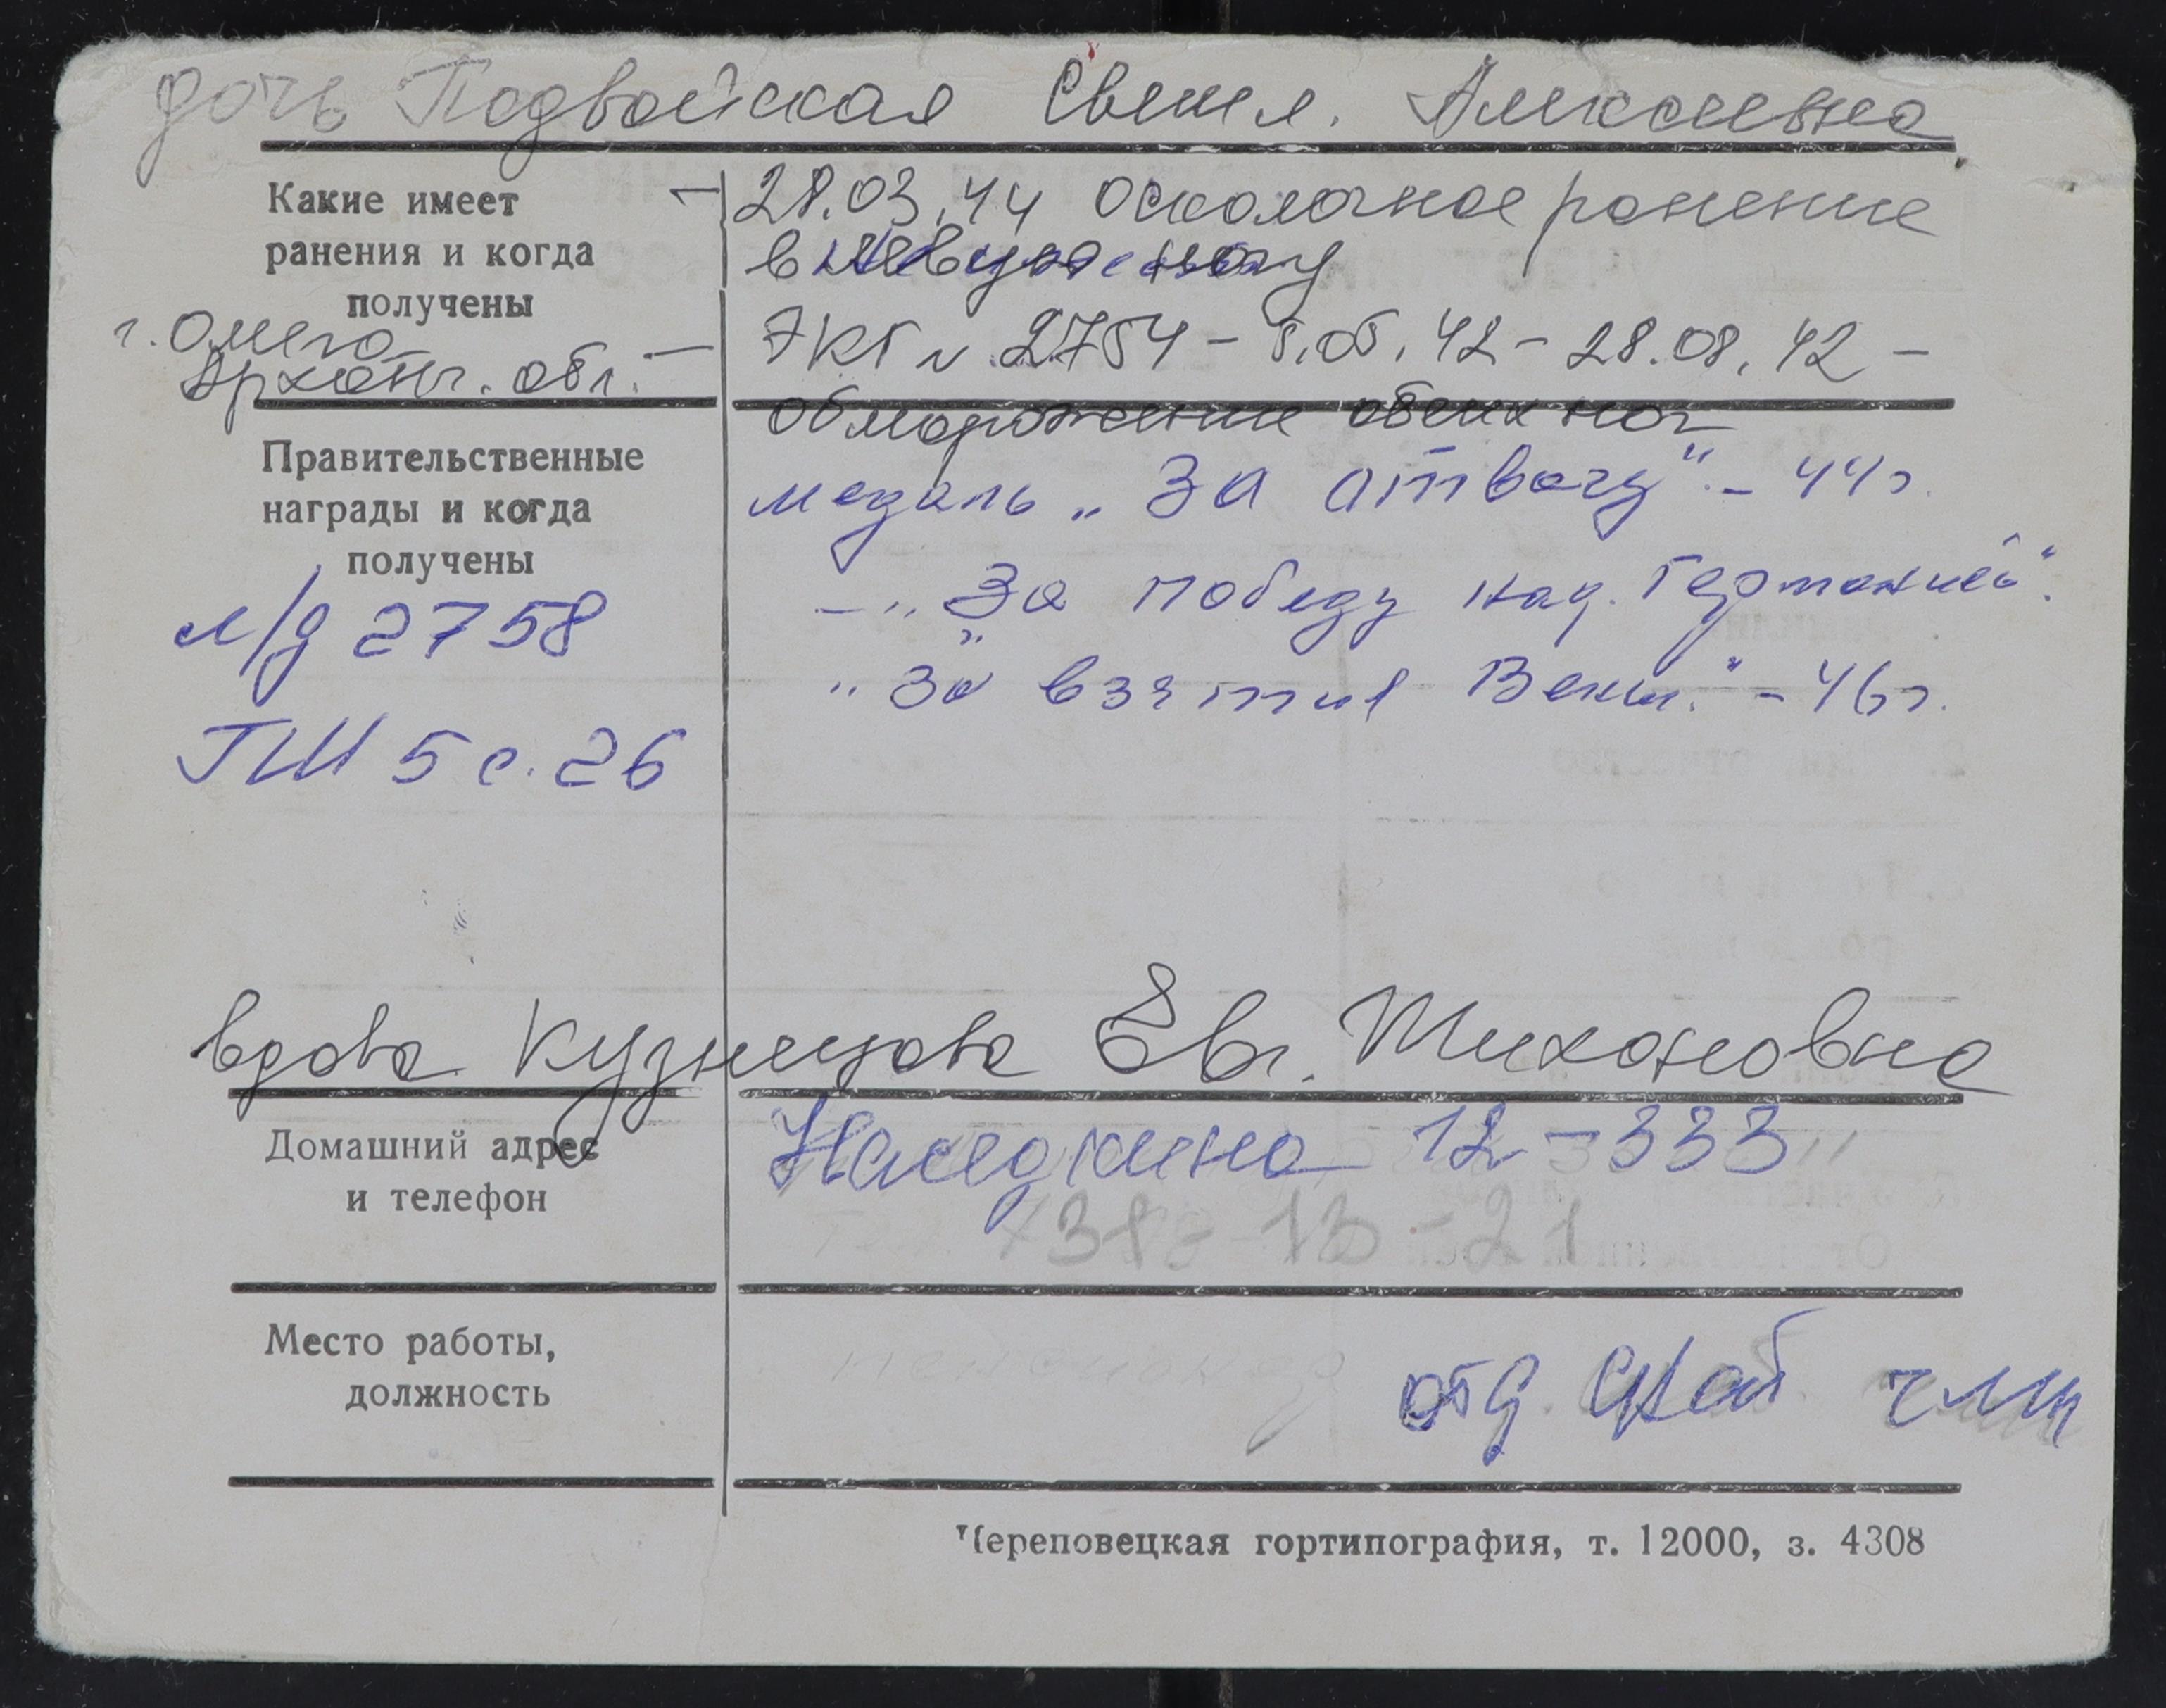 дочь Подвойская Светл. Алексеевна
Какие имеет
ранения и когда
получены
28.03.44 осколочное ранение
в левую ногу
г. Онега
Арханг. обл. —
ЭКГ № 2754 - 8.05.42 - 28.08.42 -
обморожение обеих ног
Правительственные
награды и когда
получены
медаль „За отвагу" - 44 г.
— „За победу над Германией".
„За взятие Вены." - 46 г.
л/д 2758
ГШ 5 с. 26
вдова Кузнецова Евг. Тихоновна
Домашний адрес
и телефон
Наседкина 12 - 333
13 - 21
Место работы,
должность
пенсионер
отд. снаб
Череповецкая гортипография, т. 12000, з. 4308